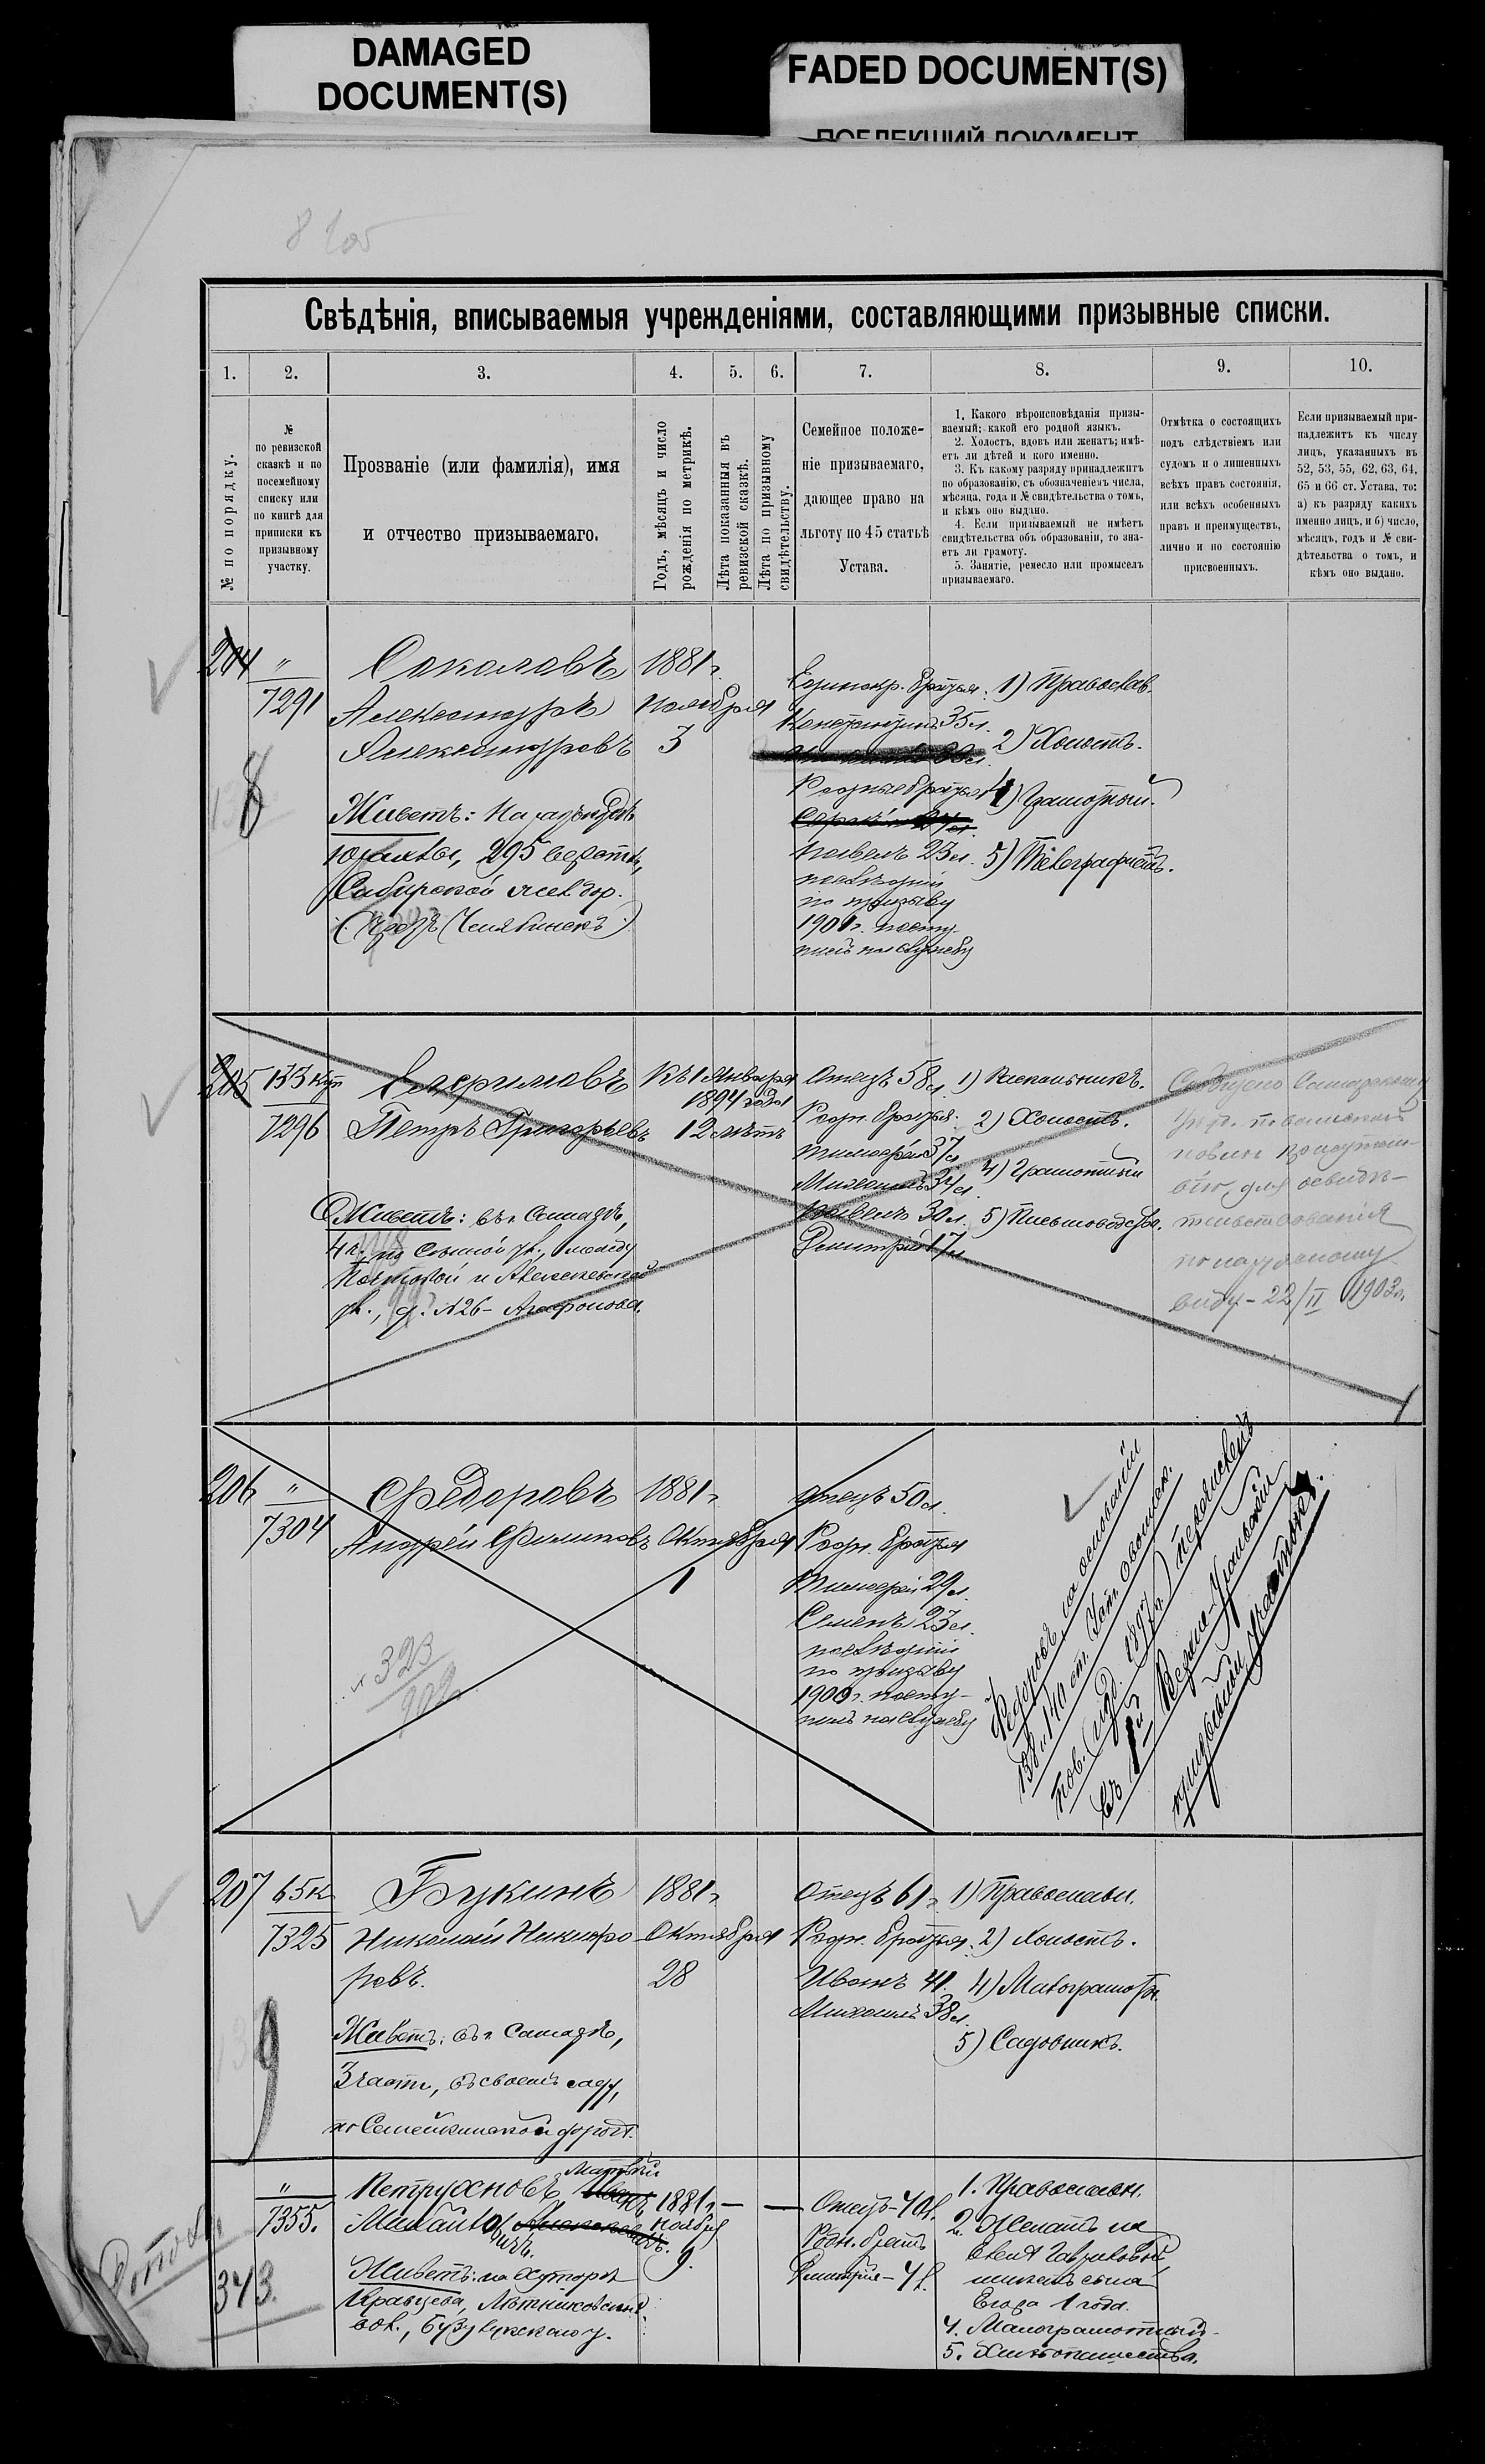 DAMAGED
DOCUMENT(S)
FADED DOCUMENT(S)
ПОБЛЕКШИЙ ДОКУМЕНТ
Свѣдѣнія, вписываемыя учрежденіями, составляющими призывные списки.
1.
2.
3.
4.
5.
6.
7.
8.
9.
10.
№ по порядку.
№
по ревизской
сказкѣ и по
посемейному
списку или
по книгѣ для
приписки къ
призывному
участку.
Прозваніе (или фамилія), имя
и отчество призываемаго.
Годъ, мѣсяцъ и число
рожденія по метрикѣ.
Лѣта показанныя въ
ревизской сказкѣ.
Лѣта по призывному
свидѣтельству.
Семейное положе-
ніе призываемаго,
дающее право на
льготу по 45 статьѣ
Устава.
1. Какого вѣроисповѣданія призы-
ваемый; какой его родной языкъ.
2. Холостъ, вдовъ или женатъ; имѣ-
етъ ли дѣтей и кого именно.
3. Къ какому разряду принадлежитъ
по образованію, съ обозначеніемъ числа,
мѣсяца, года и № свидѣтельства о томъ,
и кѣмъ оно выдано.
4. Если призываемый не имѣетъ
свидѣтельства объ образованіи, то зна-
етъ ли грамоту.
5. Занятіе, ремесло или промыселъ
призываемаго.
Отмѣтка о состоящихъ
подъ слѣдствіемъ или
судомъ и о лишенныхъ
всѣхъ правъ состоянія,
или всѣхъ особенныхъ
правъ и преимуществъ,
лично и по состоянію
присвоенныхъ.
Если призываемый при-
надлежитъ къ числу
лицъ, указанныхъ въ
52, 53, 55, 62, 63, 64,
65 и 66 ст. Устава, то:
а) къ разряду какихъ
именно лицъ, и б) число,
мѣсяцъ, годъ и № сви-
дѣтельства о томъ, и
кѣмъ оно выдано.
204
"
7291
8
Соколовъ
Александръ
Александровъ
Живетъ: На разъѣздѣ
295 верста,
Сибирской жел. дор.
(Челябинскъ)
1881 г.
Ноября
3
Единокр. братья:
Константинъ 35 л.
Родные братья
Павелъ 23 л.
послѣдній
по призыву
1901 г. посту-
пилъ на службу
1) Православ.
2) Холостъ.
4) Грамотный.
5) Телеграфистъ.
205
133 куп
7296
Петръ Григорьевъ
Живетъ: въ г. Самарѣ,
4 ч. по Сѣнной ул., между
Почтовой и Алексѣевской
ул., д. №26 - Агафонова.
Къ 1 Января
1894 года
12 лѣтъ
Отецъ 58 л.
Родн. братья:
Тимофей 37 л.
Михаилъ 34 л.
Павелъ 30 л.
Дмитрій 17 л.
1) Раскольникъ.
2) Холостъ.
4) Грамотный
5) Письмоводство.
Сообщено Самарскому
Уѣзд. по воинской
повин. присутст-
вію, для освидѣ-
тельствованія
по наружному
виду - 22/II 1903 г.
206
"
7304
Ѳедоровъ
Андрей Филиповъ
323
902
1881 г.
Октября
1
Отецъ 50 л.
Родн. братья
Тимофей 29 л.
Семенъ 23 л.
послѣдній
по призыву
1900 г. посту-
пилъ на службу
Ѳедоровъ, на основаніи
138 и 140 ст. Уст. о воинск.
пов. (изд. 1897 г.) перечисленъ
въ 1й
призывной участокъ.
207
65 к
7325
9
Букинъ
Николай Никифо-
ровъ.
Живетъ: въ г. Самарѣ,
3 части, въ своемъ саду,
по Семейкинской дорогѣ.
1881 г.
Октября
28
Отецъ 61 г.
Родн. братья:
Иванъ 41.
Михаилъ 38 л.
1) Православн.
2) Холостъ.
4) Малограмотн.
5) Садовникъ.
"
7355.
343.
Петрухновъ
Живетъ: на хуторѣ
вол., Бузулукскаго у.
1881 г.
Ноября
9.
Отецъ
Родн. братъ
Дмитрій
1. Православн.
2. Женатъ на
имѣетъ сына
Егора 1 года.
4. Малограмотный
5. Хлѣбопашество.